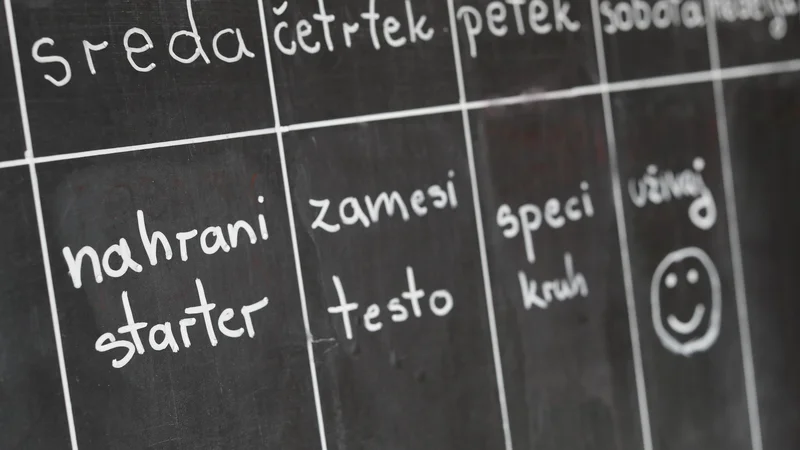 sreda četrtek petek sobota nedelja
nahrani
starter
zamesi
testo
speci
kruh
uživaj